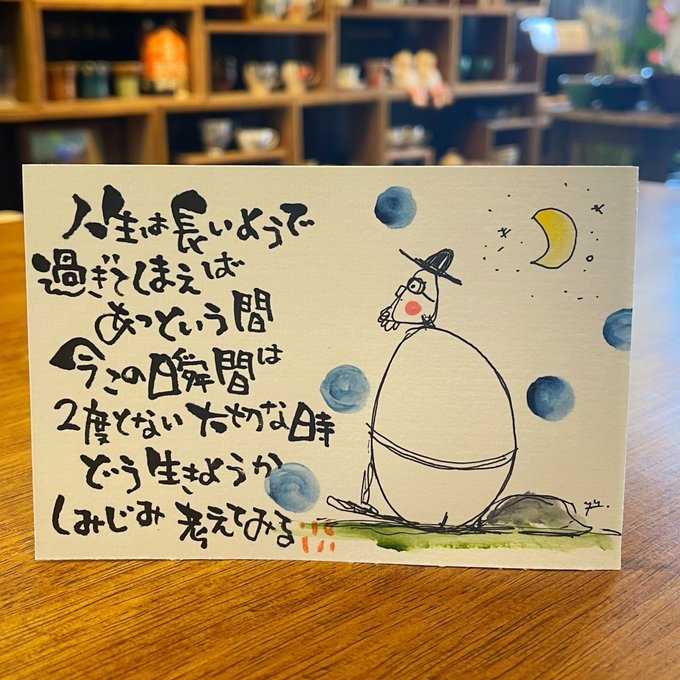 人生は長いようで
過ぎてしまえば
あっという間
今この瞬間は
2度とない大切な時
どう生きようか
しみじみ考えてみる